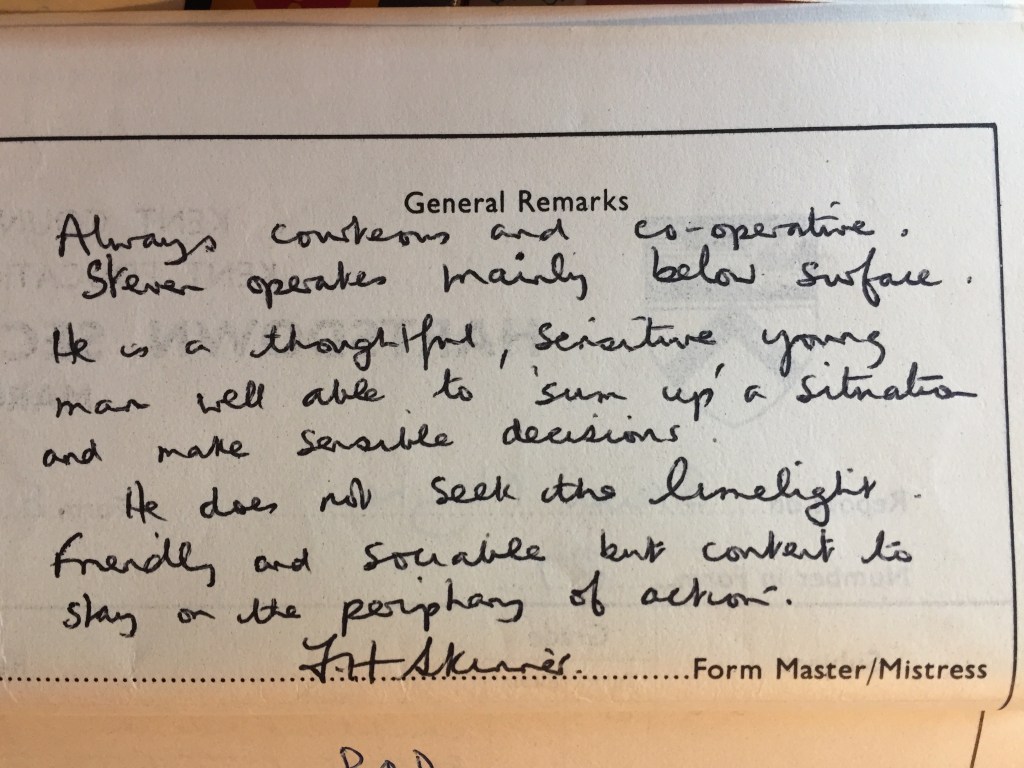 General Remarks
Always courteous and co-operative.
Steven operates mainly below surface.
He is a thoughtful, sensitive young
man well able to 'sum up' a situation
and make sensible decisions.
He does not seek the limelight.
Friendly and sociable but content to
stay on the periphary of action.
F H Skinner. Form Master/Mistress